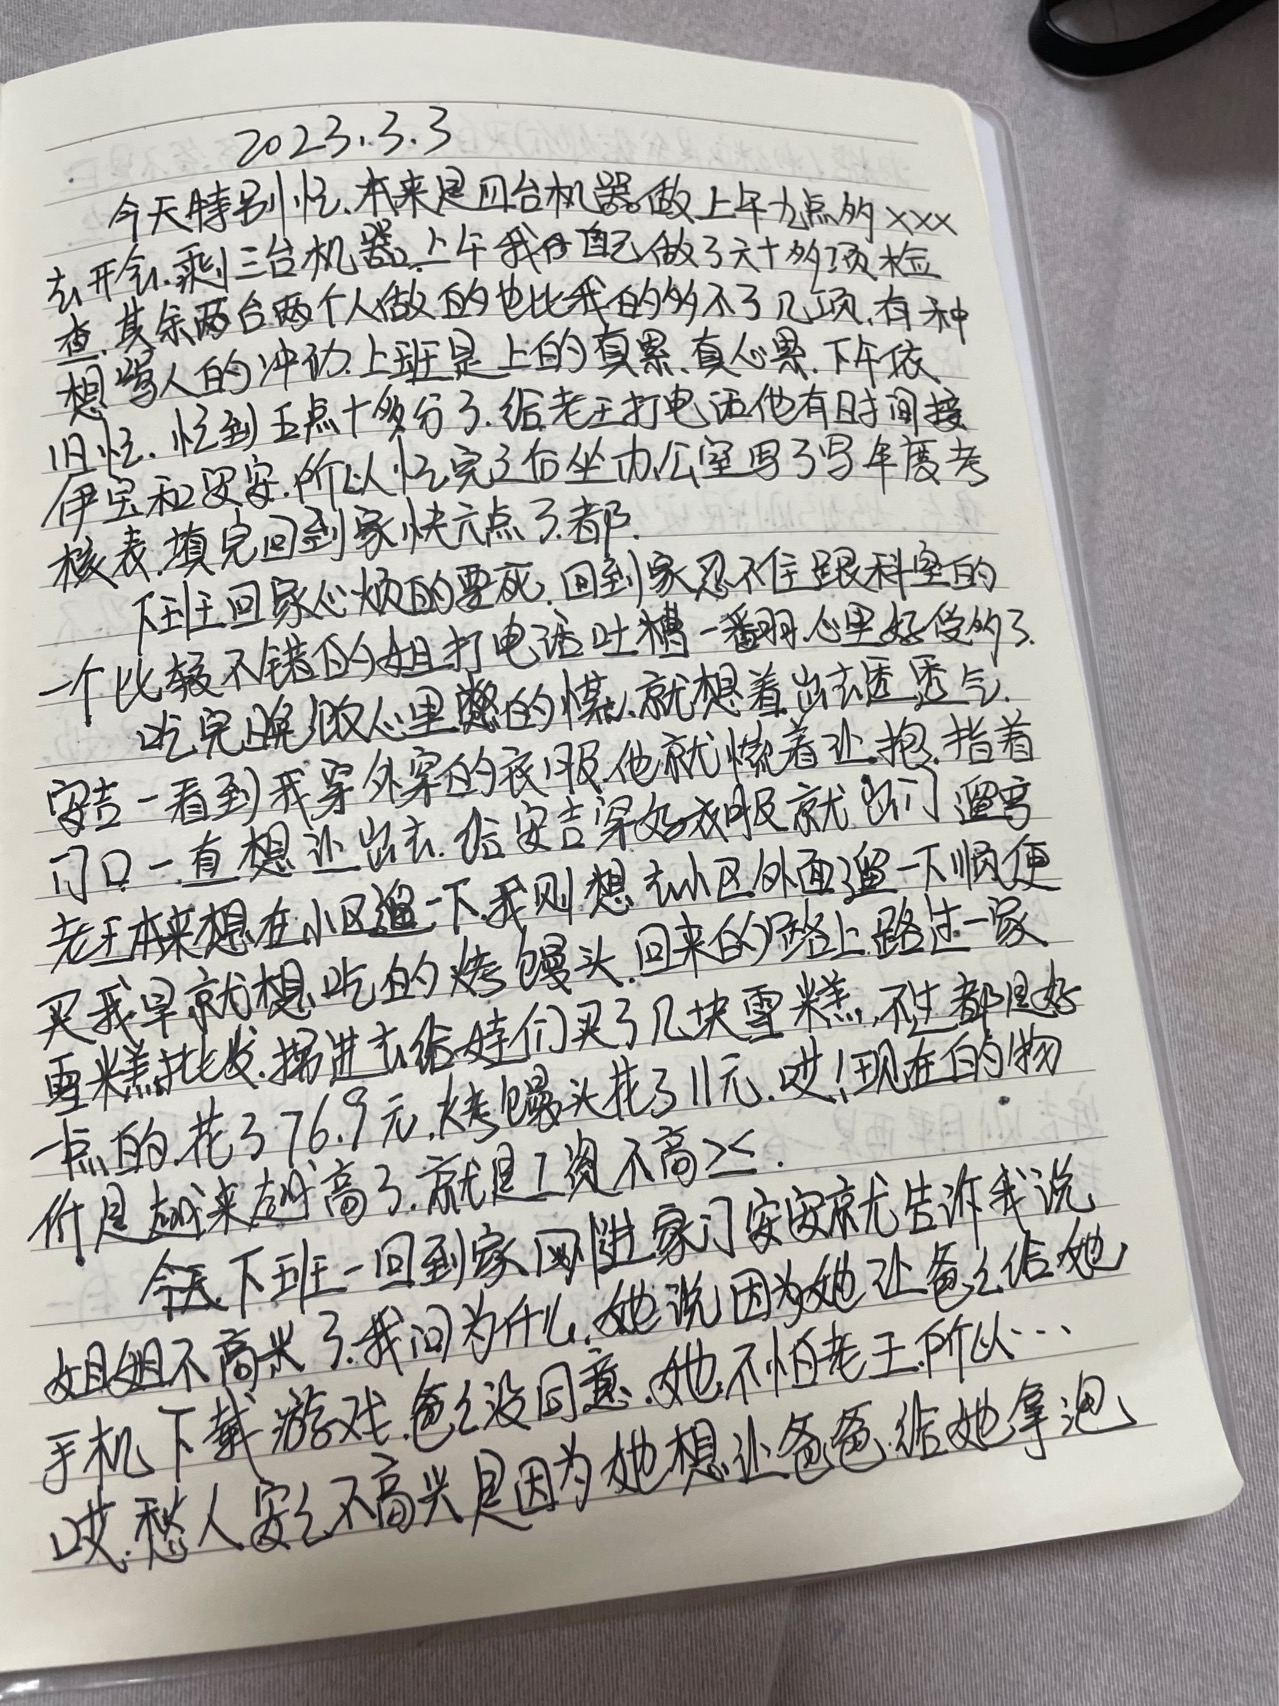 2023.3.3
今天特别忙、本来是四台机器做上午九点多xxx
去开会、剩三台机器、上午我自己做了六十多项检
查、其余两台两个人做的也比我的多不了几项、有种
想骂人的冲动、上班是上的真累、真心累、下午依
旧忙、忙到五点十多分了、给老王打电话他有时间接
伊宝和安安、所以忙完之后坐办公室写了写年度考
核表、填完回到家快六点了都.
下班回家心烦的要死、回到家忍不住跟科室的
一个比较不错的姐打电话吐槽一番、心里好受多了.
吃完晚饭心里憋的慌、就想着出去透透气.
安吉一看到我穿外穿的衣服他就惦着让抱、指着
门口一直想让出去、给安吉穿好衣服就出门遛弯
老王本来想在小区遛一下、我则想去小区外面遛一下顺便
买我早就想吃的烤馒头、回来的路上路过一家
雪糕批发、拐进去给娃们买了几块雪糕、不过都是好
一点的、花了76.9元、烤馒头花了11元、哎!现在的物
价是越来越高了、就是工资不高><.
今天下班一回到家刚进家门安安就告诉我说
姐姐不高兴了、我问为什么、她说因为她让爸爸给她
手机下载游戏、爸爸没同意、她不怕老王、所以…
哎、愁人、安安不高兴是因为她想让爸爸给她拿泡